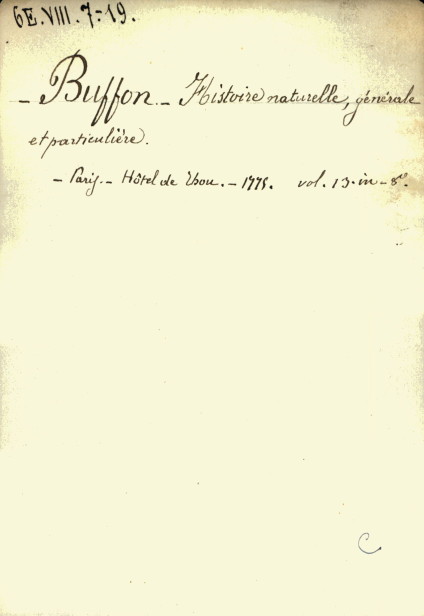 6E.VIII.7-19.
- Buffon. - Histoire naturelle, générale
et particulière.
- Paris. - Hôtel de Thou. - 1775. vol. 13. in-8º.
C